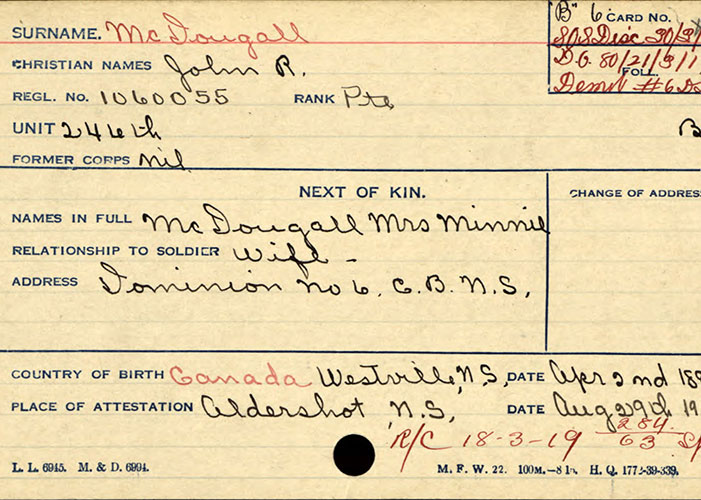 SURNAME. McDougall
B" 6 CARD NO.
SOS Disc 30/3/1
CHRISTIAN NAMES John R.
D.O. 80/21/3/1
FOLL.
REGL. NO. 1060055 RANK Pte
Demob #6 D
UNIT 246th
B
FORMER CORPS nil
NEXT OF KIN.
CHANGE OF ADDRESS
NAMES IN FULL McDougall Mrs Minnie
RELATIONSHIP TO SOLDIER Wife -
ADDRESS Dominion No 6. C.B. N.S.
COUNTRY OF BIRTH Canada Westville, N.S. DATE Apr 2nd 18
PLACE OF ATTESTATION Aldershot N.S. DATE Aug 29th 19
R/C 18-3-19 284 63
L. L. 6945. M. & D. 6994. M. F. W. 22. 100M.—8 18. H. Q. 1772-39-339.